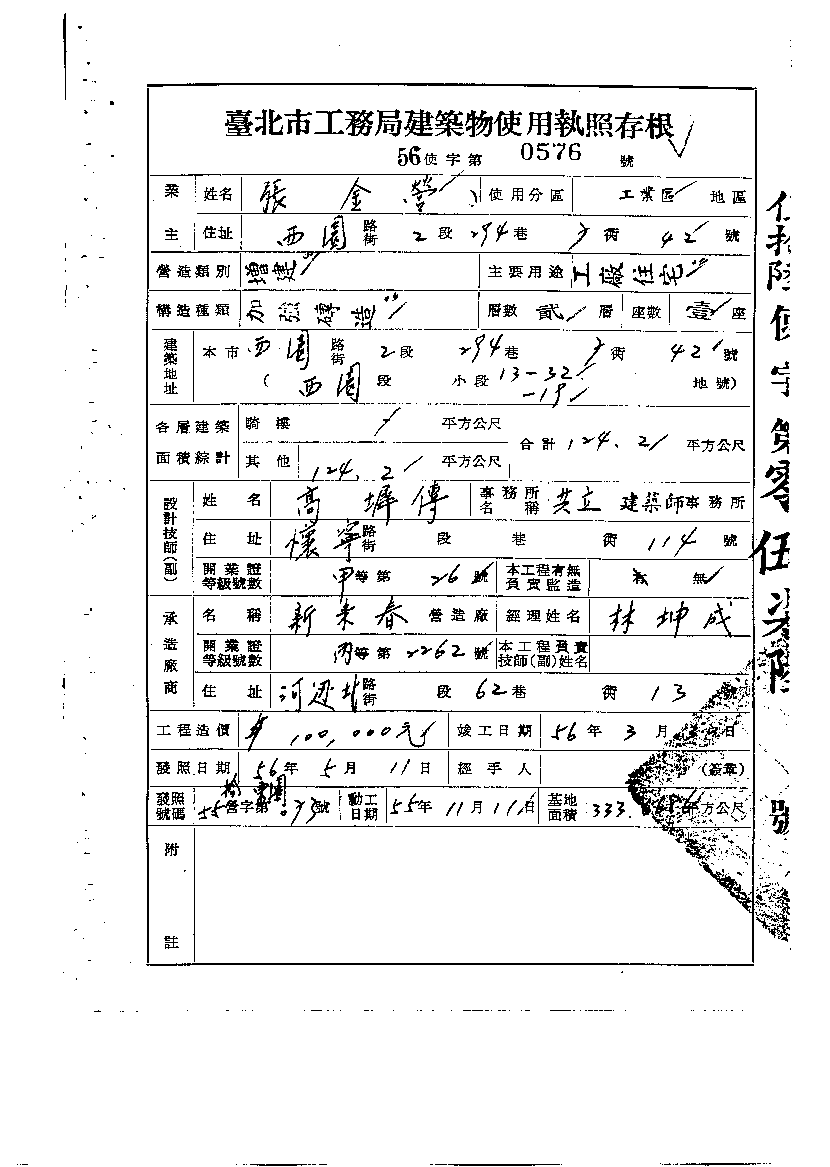 臺北市工務局建築物使用執照存根
56使字第 0576 號
業主 姓名 張金營 使用分區 工業區 地區
住址 西園路街 2段 294巷 衖 42 號
營造類別 增建 主要用途 工廠住宅
構造種類 加強磚造 層數 貳 層 座數 壹 座
建築地址 本市 西園路街 2段 294巷 衖 42 號
( 西園段 小段 13-32 地號)
-19
各層建築面積綜計 騎樓 平方公尺 合計 124.21 平方公尺
其他 124.21 平方公尺
設計技師(副) 姓名 高 傳 事務所名稱 共立 建築師事務所
住址 懷寧路街 段 巷 衖 114 號
開業證等級號數 甲等第 26 號 本工程有無負責監造 無
承造廠商 名稱 新來春 營造廠 經理姓名 林坤成
開業證等級號數 丙等第 2262 號 本工程負責技師(副)姓名
住址 河北路街 段 62巷 衖 13 號
工程造價 100,000元 竣工日期 56年 3月 日
發照日期 56年 5月 11日 經手人 (簽章)
發照號碼 55營字第 號 動工日期 55年 11月 11日 基地面積 333. 平方公尺
附註
伍拾陸使字第零伍柒陸號